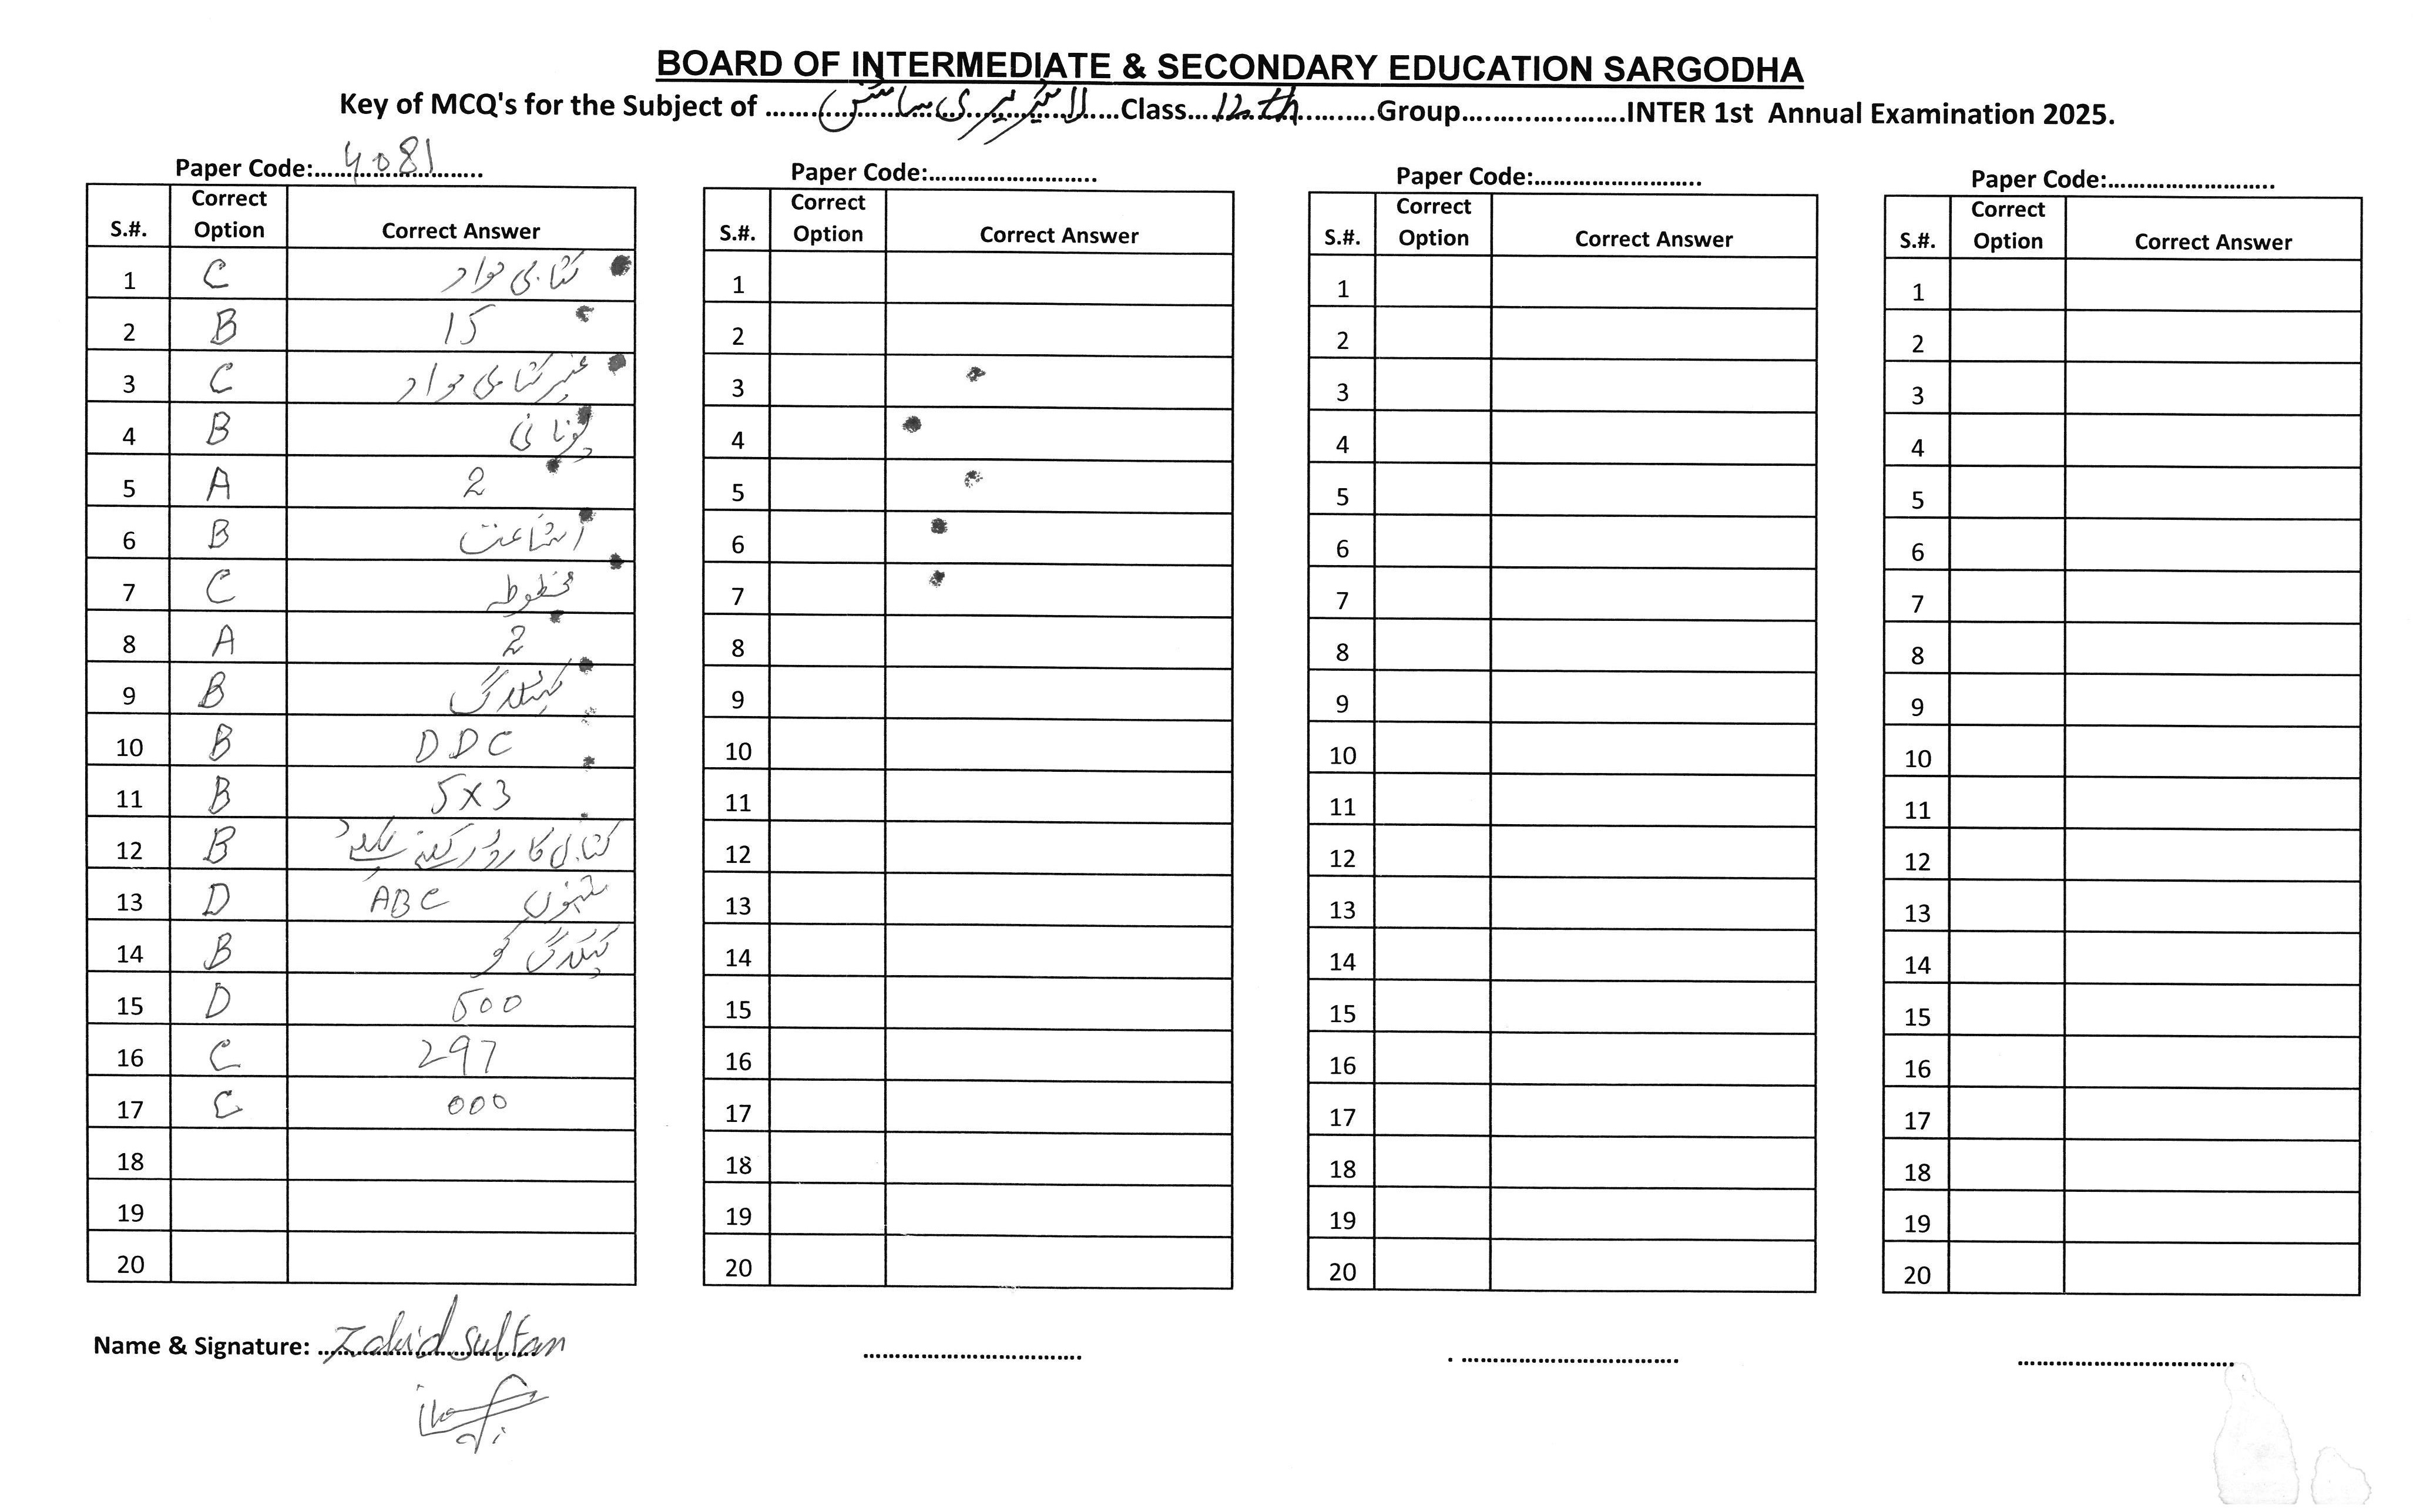 BOARD OF INTERMEDIATE & SECONDARY EDUCATION SARGODHA
Key of MCQ's for the Subject of لائبریری سائنس Class 12th Group INTER 1st Annual Examination 2025.
Paper Code: 4081
S.#. Correct Option Correct Answer
1 C کتابی مواد
2 B 15
3 C غیر کتابی مواد
4 B یونانی
5 A 2
6 B اشاعت
7 C مخطوطہ
8 A 2
9 B کیٹلاگ
10 B DDC
11 B 5x3
12 B
13 D ABC تینوں
14 B کیٹلاگ کو
15 D 500
16 C 297
17 C 000
18
19
20
Name & Signature: Zahid Sultan
Paper Code:
S.#. Correct Option Correct Answer
1
2
3
4
5
6
7
8
9
10
11
12
13
14
15
16
17
18
19
20
Paper Code:
S.#. Correct Option Correct Answer
1
2
3
4
5
6
7
8
9
10
11
12
13
14
15
16
17
18
19
20
Paper Code:
S.#. Correct Option Correct Answer
1
2
3
4
5
6
7
8
9
10
11
12
13
14
15
16
17
18
19
20